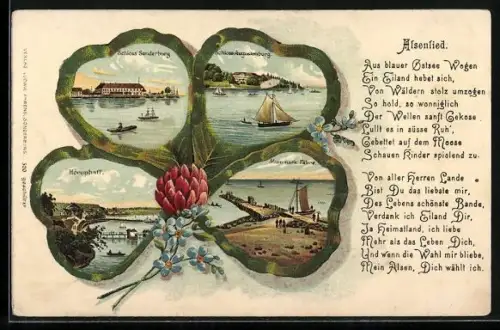 Alsenlied.
Schloss Sonderburg
Schloss Augustenburg
Aus blauer Ostsee Wogen
Ein Eiland hebet sich,
Von Wäldern stolz umzogen
So hold, so wonniglich
Der Wellen sanft Gekose
Lullt es in süsse Ruh',
Gebettet auf dem Moose
Schauen Rinder spielend zu.
Von aller Herren Lande
Bist Du das liebste mir,
Des Lebens schönste Bande,
Verdank ich Eiland Dir,
Ja Heimatland, ich liebe
Mehr als das Leben Dich,
Und wenn die Wahl mir bliebe,
Mein Alsen, Dich wählt ich.